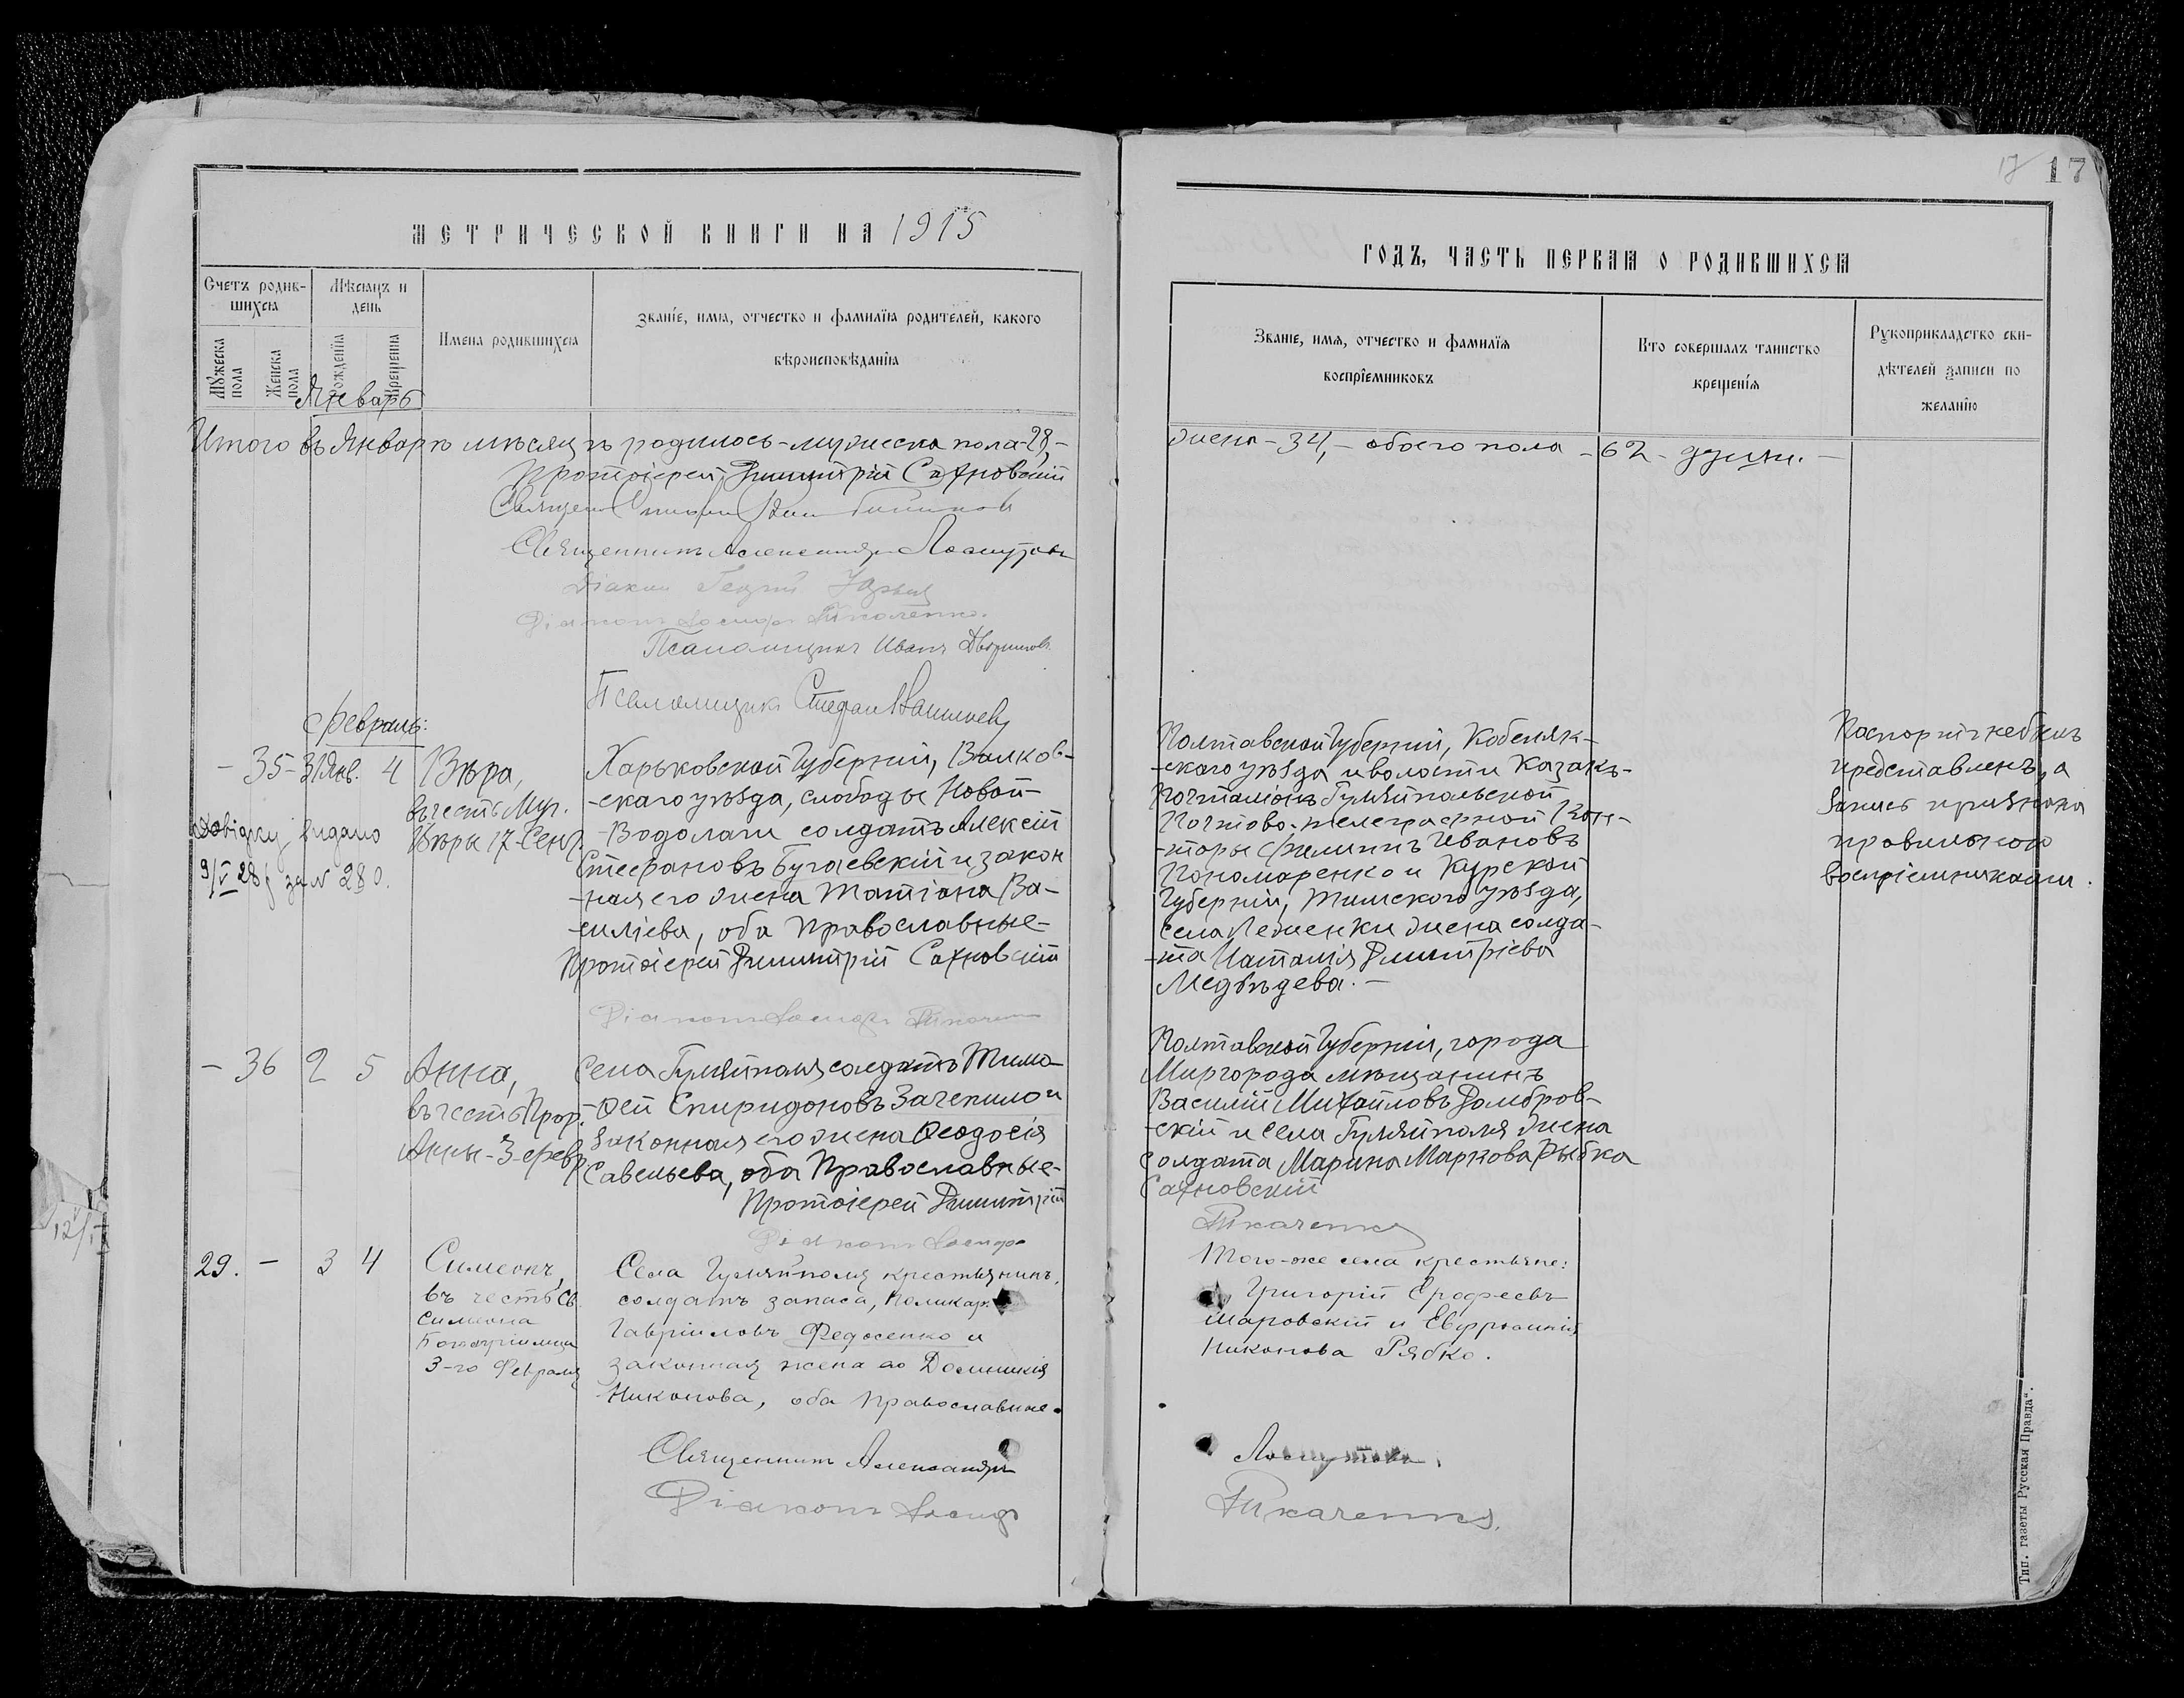 17 17
МЕТРИЧЕСКОЙ КНИГИ НА 1915
Счетъ родив-
шихся
Мѣсяцъ и
день
Мужеска
пола
Женска
пола
Рожденія
Крещенія
Имена родившихся
Званіе, имя, отчество и фамилія родителей, какого
вѣроисповѣданія
Январь
Итого въ Январѣ мѣсяцѣ родилось – мужеска пола – 28, –
Протоіерей Димитрій Сахновскій
Священникъ Александръ Лоскутовъ
Діаконъ Георгій
Діаконъ Іосифъ Ткаченко.
Псаломщикъ Иванъ
Псаломщикъ Стефанъ
Февраль:
– 35 – 31 Янв. 4 Вѣра,
въ честь Муч.
Вѣры 17 Сент.
Довідку видано
9/V 28 р за № 280.
Харьковской Губерніи, Валков-
-скаго уѣзда, слободы Новой-
-Водолаги солдатъ Алексій
Стефановъ Бугаевскій и закон
-ная его жена Татіана Ва-
-силіева, оба Православные –
Протоіерей Димитрій Сахновскій
Діаконъ Іосифъ Ткаченко
– 36 2 5 Анна,
въ честь Прор.
Анны – 3 февр.
Села Гуляйполя солдатъ Тимо-
-ѳей Спиридоновъ Зачепило и
законная его жена Ѳеодосія
Савельева, оба Православные –
Протоіерей Димитрій
Діаконъ Іосифъ
29. – 3 4 Симеонъ,
въ честь Св.
Симеона
Богопріимца
3-го Февраля
Села Гуляйполя крестьянинъ,
солдатъ запаса, Поликар.
Гавріиловъ Федосенко и
законная жена его Домникія
Никонова, оба православные.
Священникъ Александръ
Діаконъ Іосифъ
ГОДЪ, ЧАСТЬ ПЕРВАЯ О РОДИВШИХСЯ
Званіе, имя, отчество и фамилія
воспріемниковъ
Кто совершалъ таинство
крещенія
Рукоприкладство сви-
дѣтелей записи по
желанію
женск – 34, – обоего пола – 62 – души. –
Полтавской Губерніи, Кобеляк-
-скаго уѣзда и волости Казакъ –
Почталіонъ Гуляйпольской
Почтово-телеграфной Кон-
-торы Филиппъ Ивановъ
Пономаренко и Курской
Губерніи, Тимского уѣзда,
села жена солда-
-та Наталія Димитріева
Медвѣдева. –
Паспортъ не былъ
представленъ, а
запись признана
правильною
воспріемниками.
Полтавской Губерніи, города
Миргорода мѣщанинъ
Василій Михайловъ Домбров-
-скій и села Гуляйполя жена
солдата Марина Маркова Рыбка
Сахновскій
Ткаченко
Того-же села крестьяне:
Григорій Ерофеевъ
Шаровскій и Евфросинія
Никонова Рябко.
Лоскутовъ.
Ткаченко.
Тип. газеты Русская Правда".